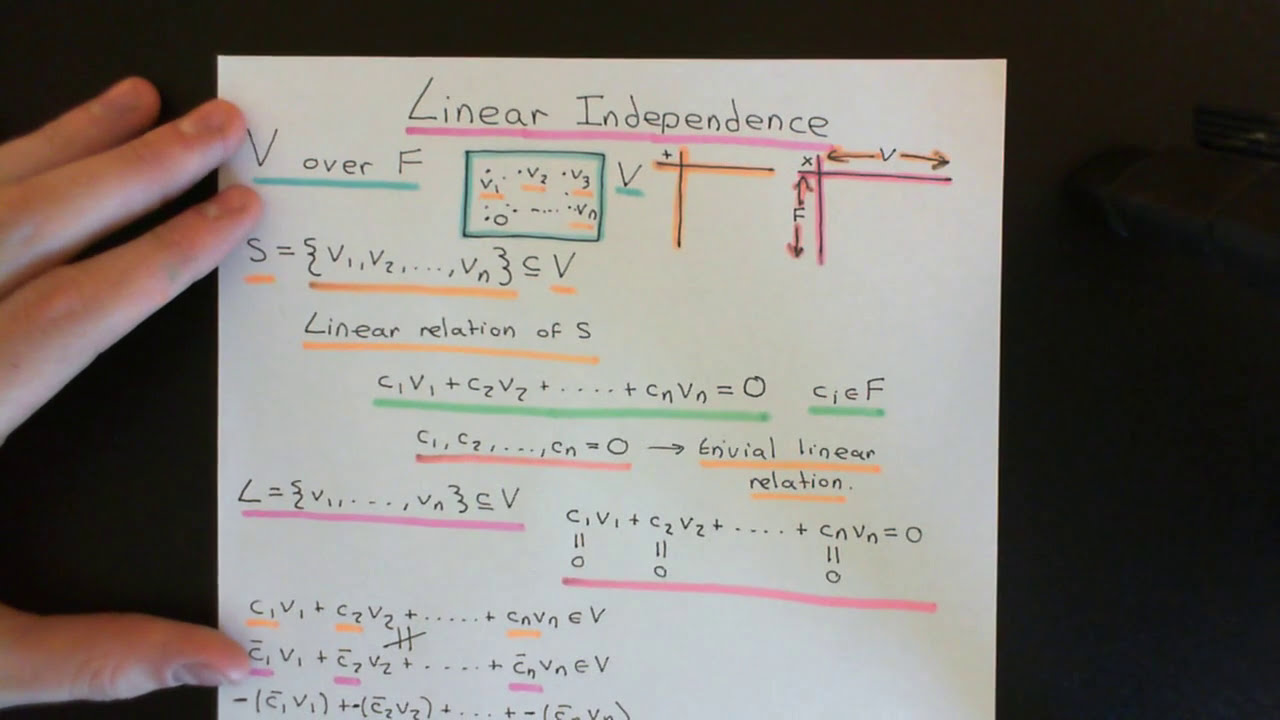 Linear Independence
V over F
v₁ v₂ v₃
0 .... vₙ
V
+
x V
F
S = {v₁,v₂,...,vₙ} ⊆ V
Linear relation of S
c₁v₁ + c₂v₂ + ..... + cₙvₙ = 0 cᵢ∈F
c₁,c₂,...,cₙ = 0 → trivial linear
relation.
L = {v₁,...,vₙ} ⊆ V
c₁v₁ + c₂v₂ + ..... + cₙvₙ = 0
|| || ||
0 0 0
c₁v₁ + c₂v₂ + ..... + cₙvₙ ∈ V
≠
c̄₁v₁ + c̄₂v₂ + ..... + c̄ₙvₙ ∈ V
-(c̄₁v₁) + -(c̄₂v₂) + ... + -(c̄ₙvₙ)